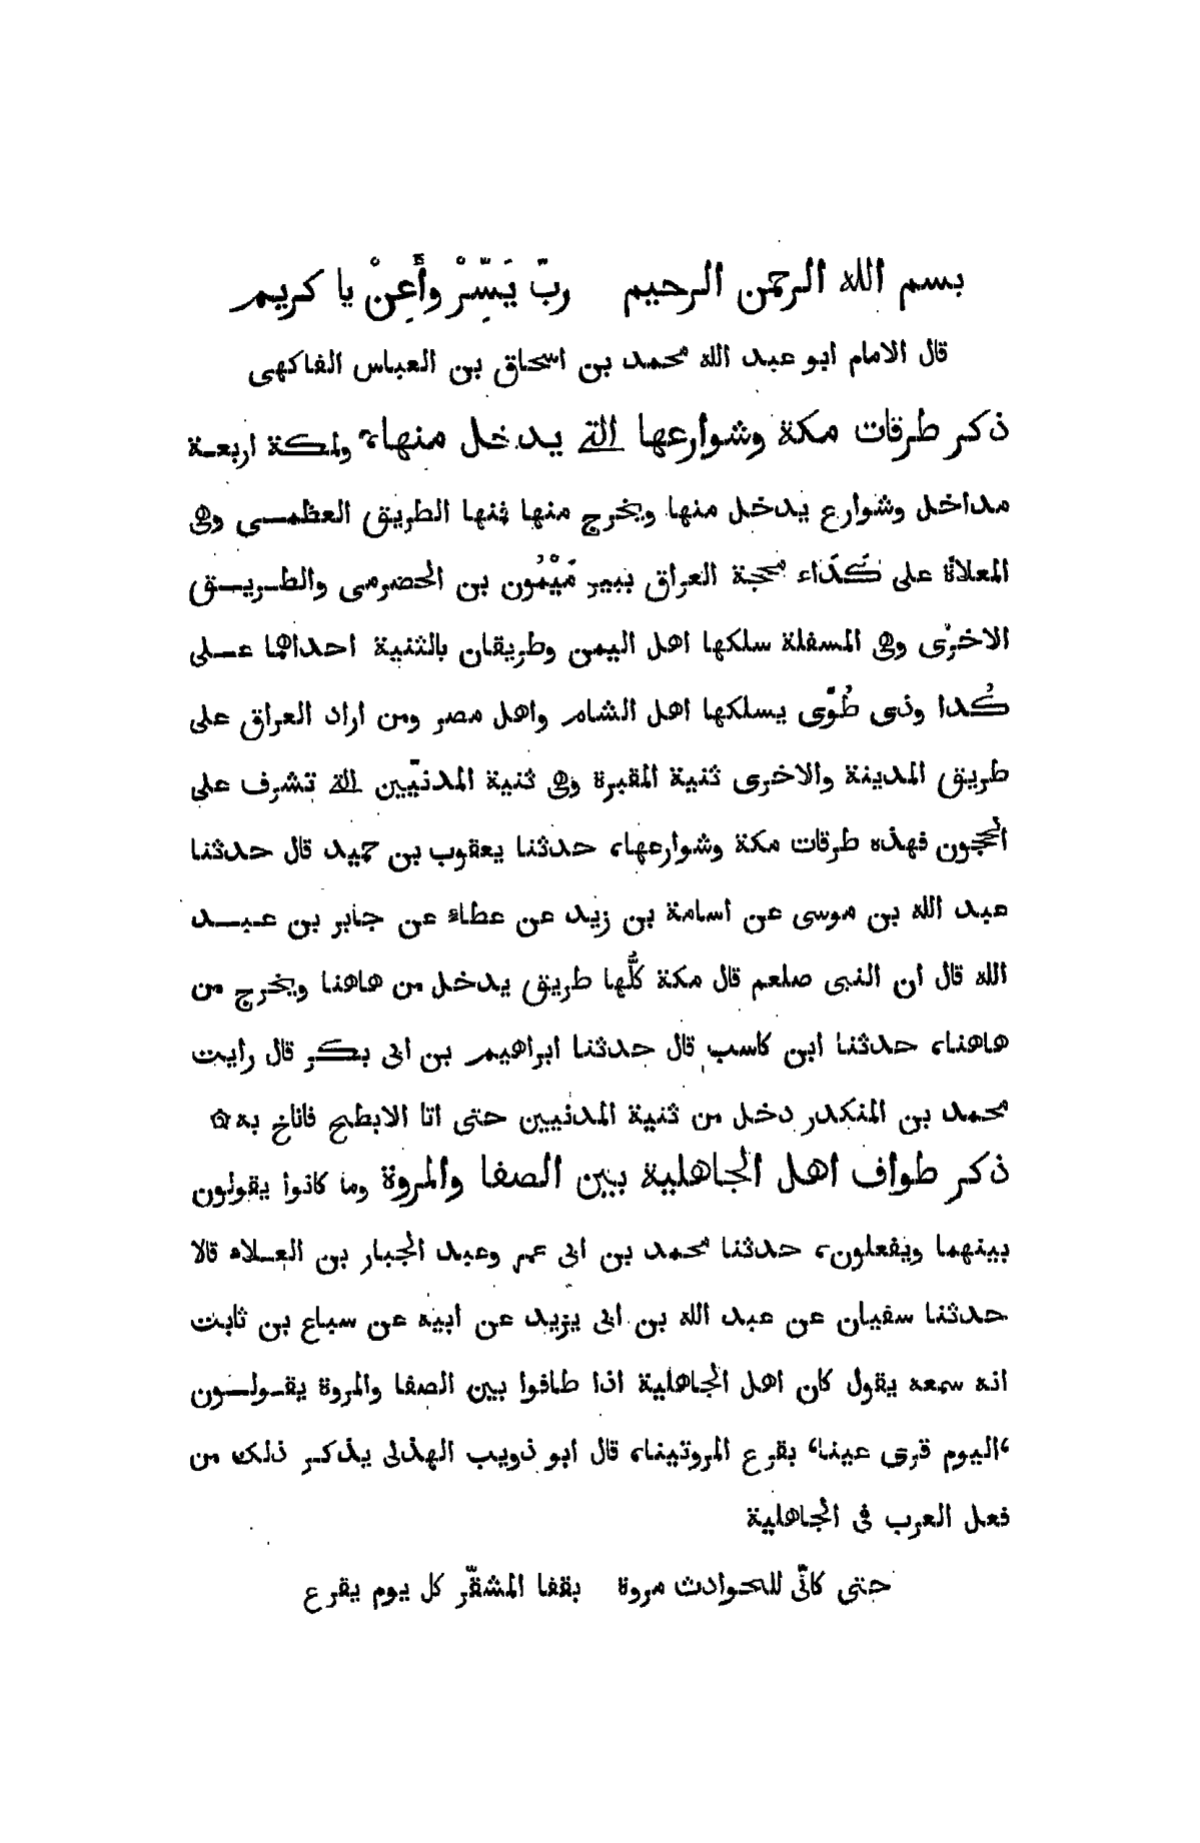 بسم الله الرحمن الرحيم ربّ يَسِّرْ وأَعِنْ يا كريم
قال الامام ابو عبد الله محمد بن اسحاق بن العباس الفاكهى
ذكر طرقات مكة وشوارعها التى يدخل منها، ولمكة اربعة
مداخل وشوارع يدخل منها ويخرج منها فمنها الطريق العظمى وهى
المعلاة على كَدَاء محجة العراق ببير مَيْمُون بن الحضرمى والطريق
الاخرى وهى المسفلة سلكها اهل اليمن وطريقان بالثنية احداهما على
كُدا وذى طُوًى يسلكها اهل الشام واهل مصر ومن اراد العراق على
طريق المدينة والاخرى ثنية المقبرة وهى ثنية المدنيّين التى تشرف على
الحجون فهذه طرقات مكة وشوارعها، حدثنا يعقوب بن حميد قال حدثنا
عبد الله بن موسى عن اسامة بن زيد عن عطاء عن جابر بن عبد
الله قال ان النبى صلعم قال مكة كلُّها طريق يدخل من هاهنا ويخرج من
هاهنا، حدثنا ابن كاسب قال حدثنا ابراهيم بن ابى بكر قال رايت
محمد بن المنكدر دخل من ثنية المدنيين حتى اتا الابطح فاناخ به ۞
ذكر طواف اهل الجاهلية بين الصفا والمروة وما كانوا يقولون
بينهما ويفعلون، حدثنا محمد بن ابى عمر وعبد الجبار بن العلاء قالا
حدثنا سفيان عن عبد الله بن ابى يزيد عن ابيه عن سباع بن ثابت
انه سمعه يقول كان اهل الجاهلية اذا طافوا بين الصفا والمروة يقولون
‘اليوم قرى عينا‘ بقرع المروتينا، قال ابو ذويب الهذلى يذكر ذلك من
فعل العرب فى الجاهلية
حتى كانّى للحوادث مروة بقفا المشقّر كل يوم يقرع